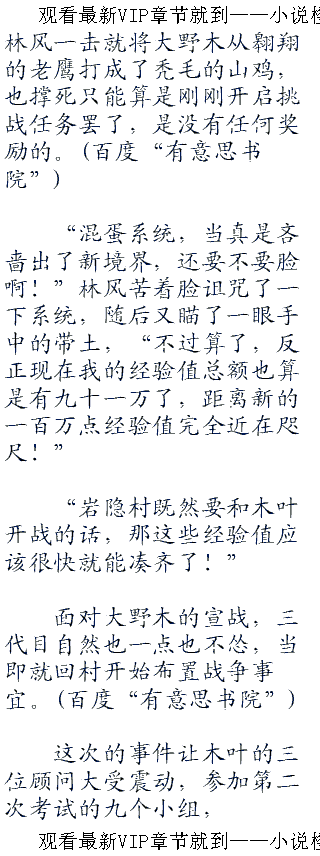 观看最新VIP章节就到——小说检
林风一击就将大野木从翱翔
的老鹰打成了秃毛的山鸡，
也撑死只能算是刚刚开启挑
战任务罢了，是没有任何奖
励的。(百度“有意思书
院”)
“混蛋系统，当真是吝
啬出了新境界，还要不要脸
啊！”林风苦着脸诅咒了一
下系统，随后又瞄了一眼手
中的带土，“不过算了，反
正现在我的经验值总额也算
是有九十一万了，距离新的
一百万点经验值完全近在咫
尺！”
“岩隐村既然要和木叶
开战的话，那这些经验值应
该很快就能凑齐了！”
面对大野木的宣战，三
代目自然也一点也不怂，当
即就回村开始布置战争事
宜。(百度“有意思书院”)
这次的事件让木叶的三
位顾问大受震动，参加第二
次考试的九个小组，
观看最新VIP章节就到——小说检